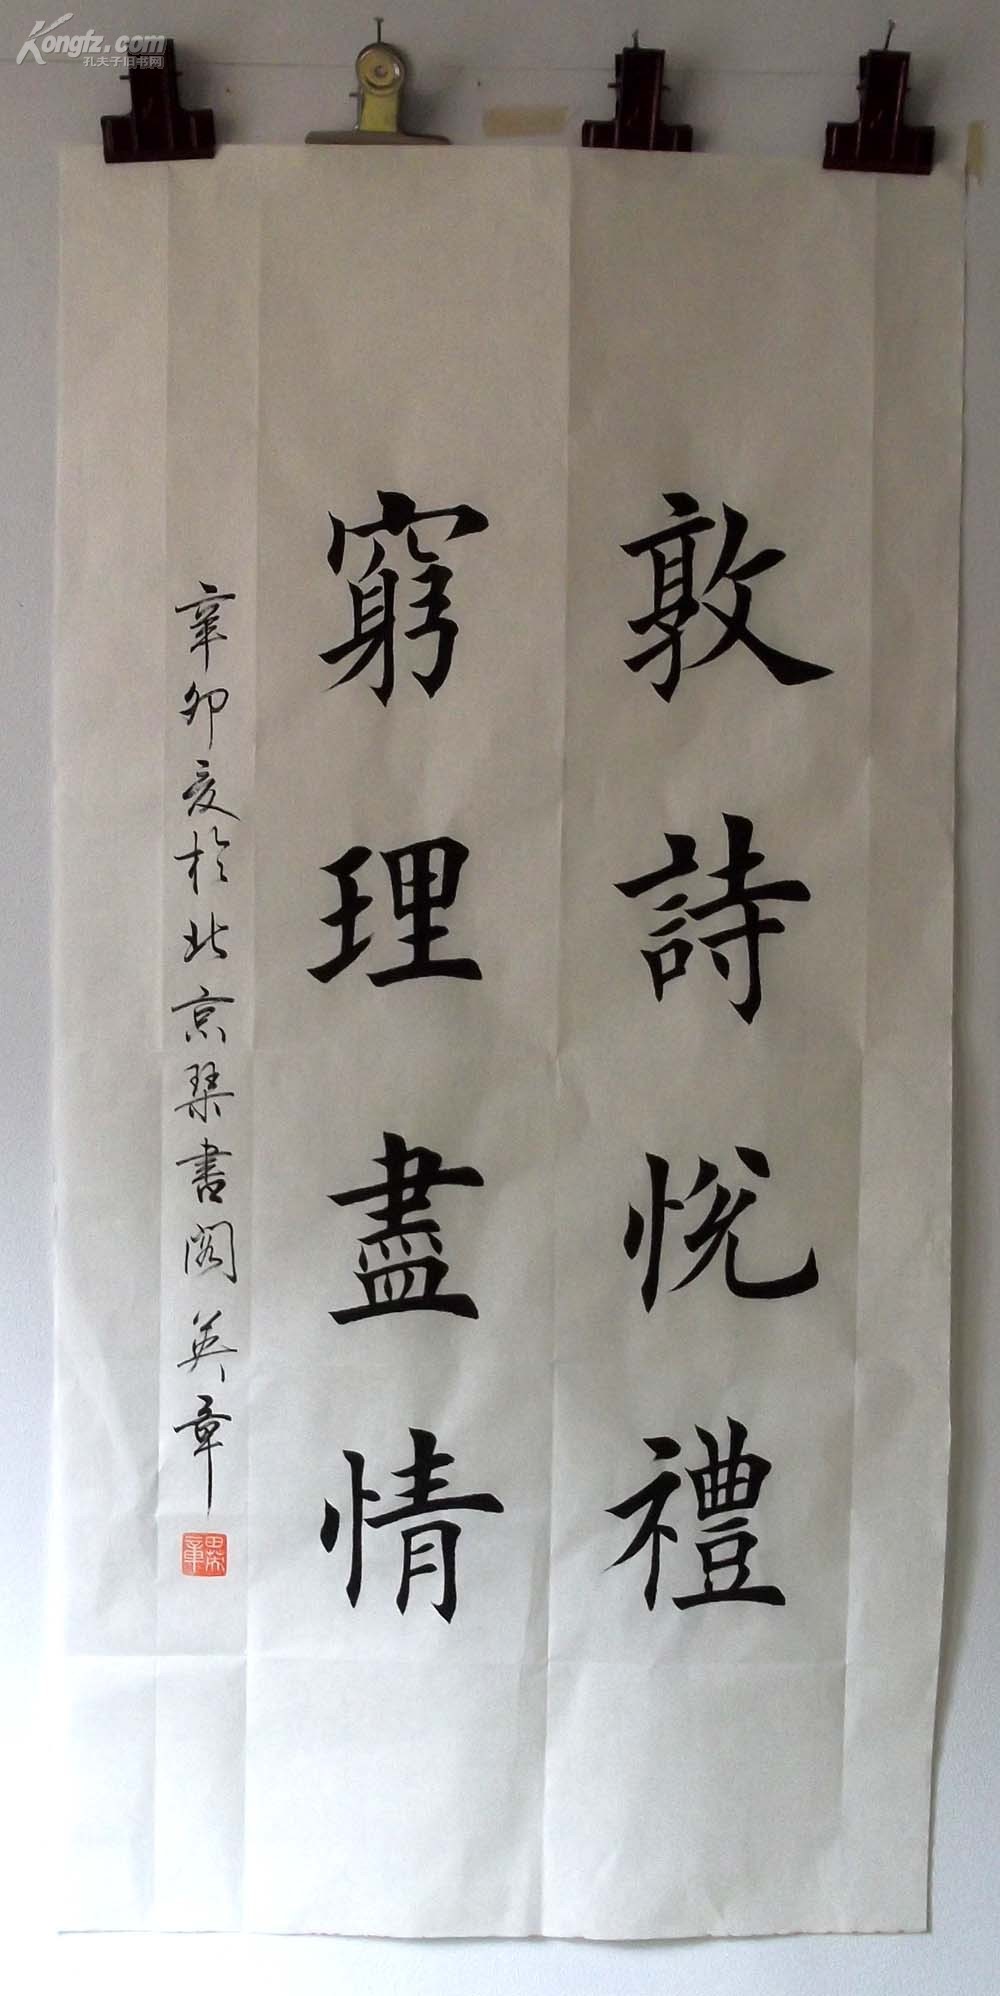 Kongfz.com
孔夫子旧书网
敦詩悅禮
窮理盡情
辛卯夏於北京琹書閣英章